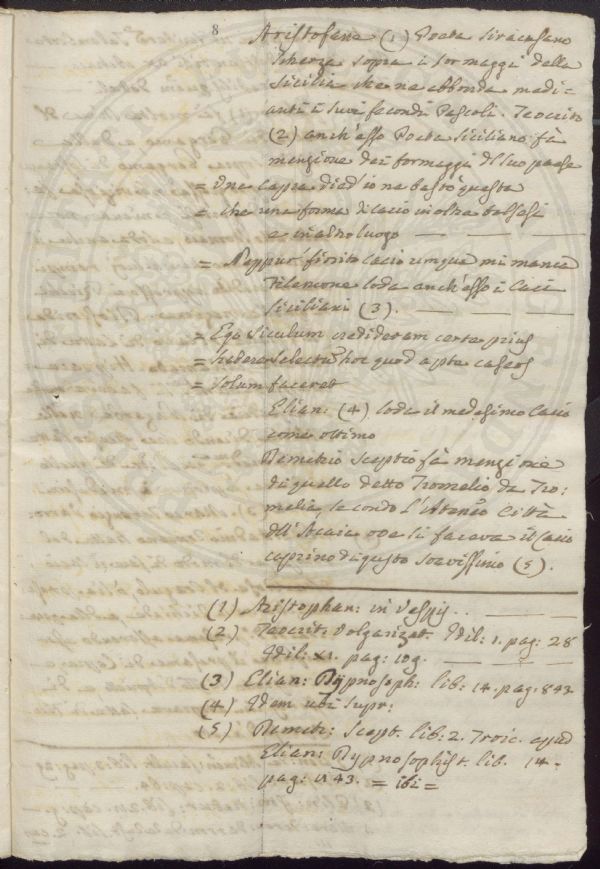 8
Aristofane (1) Poeta Siracusano
scherza sopra i formaggi della
Sicilia che ne abbonda medi
anti i suoi fecondi Pascoli. Teocrito
(2) anch'esso Poeta Siciliano fà
menzione dei formaggi del suo paese
= Una capra died'io ne bastò questa
= che una forma di cacio
luogo
= Neppur fiorito Cacio unque mi manca
Filemone loda anch'esso i Caci
Siciliani (3).
= Ego Siculum credideram certe prius
= hoc quod apte caseos
= Solum faceret
Elian: (4) loda il medesimo Cacio
come ottimo
Demetrio Scepsio fà menzione
di quello detto Tromelio da Tro:
melia, secondo l'Ateneo Città
dell'Acaia ove si faceva il Cacio
caprino di gusto soavissimo (5).
(1) Aristophan: in Vespis..
(2) Teocrit: Volgarizat. Idil: 1. pag: 28
Idil: XI. pag: 109.
(3) Elian: Dypnosoph: lib: 14. pag: 843
(4) Idem ubi supr:
(5) Demetr: Scept. lib: 2. Troic. apud
Elian: Dypnosophist. lib. 14.
pag: 843. = ibi =